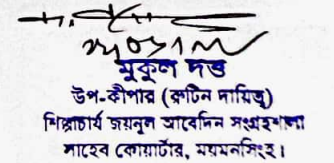 মুকুল দত্ত
উপ-কীপার (রুটিন দায়িত্ব)
শিল্পাচার্য জয়নুল আবেদিন সংগ্রহশালা
সাহেব কোয়ার্টার, ময়মনসিংহ।